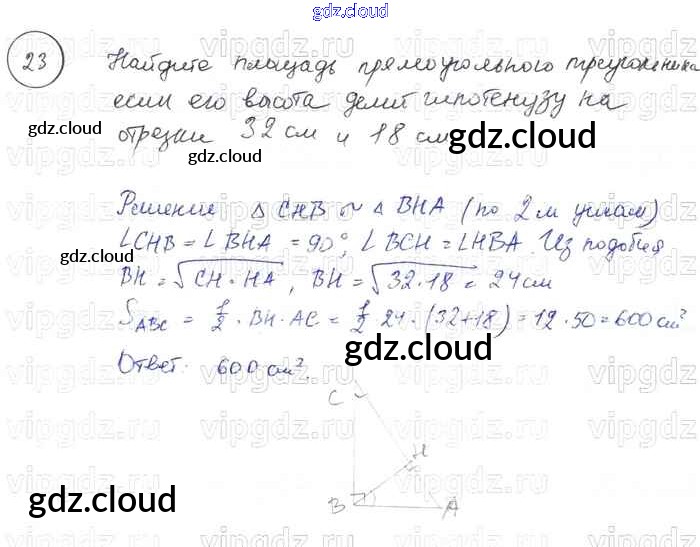 gdz.cloud
23 Найдите площадь прямоугольного треугольника
если его высота делит гипотенузу на
gdz.cloud
отрезки 32 см и 18 см
gdz.cloud
gdz.cloud
Решение △ CHB ~ △ BHA (по 2м углам)
∠CHB = ∠BHA = 90°, ∠BCH = ∠HBA. Из подобия
gdz.cloud
BH = √CH·HA, BH = √32·18 = 24см
S ABC = 1/2 · BH · AC = 1/2 24 · (32+18) = 12·50 = 600 см²
gdz.cloud
gdz.cloud
Ответ: 600 см².
C
H
B
A
gdz.cloud
gdz.cloud
vipgdz.ru